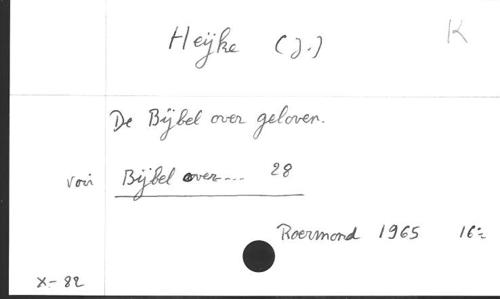 Heijke (J.)
K
De Bijbel over geloven.
voir Bijbel over... 28
Roermond 1965 16=
X-82